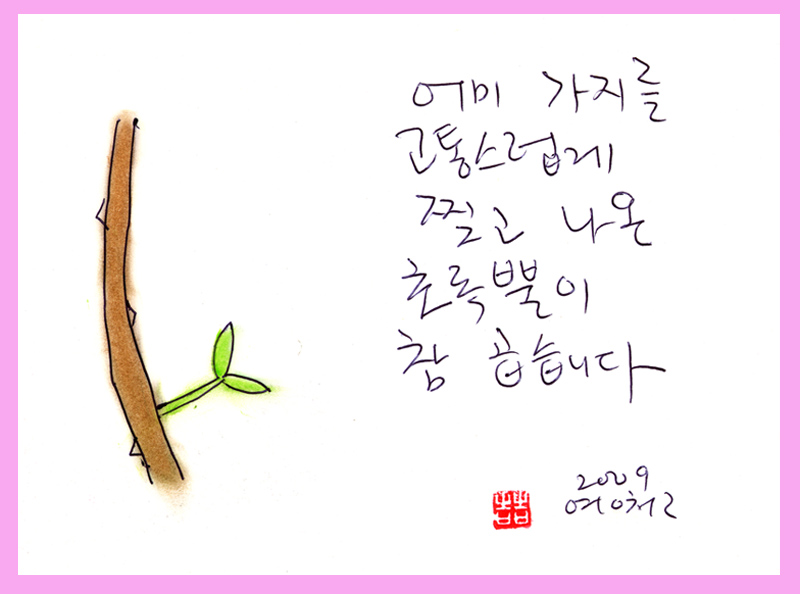 어미 가지를
고통스럽게
찢고 나온
초록뿔이
참 곱습니다
2009